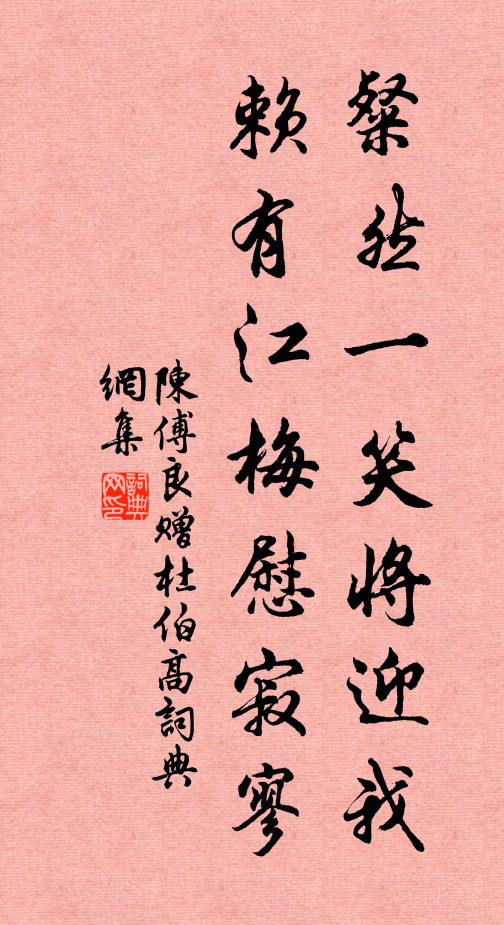 粲然一笑將迎我
賴有江梅慰寂寥
陳傅良贈杜伯高詞典
網集
詞典
网印